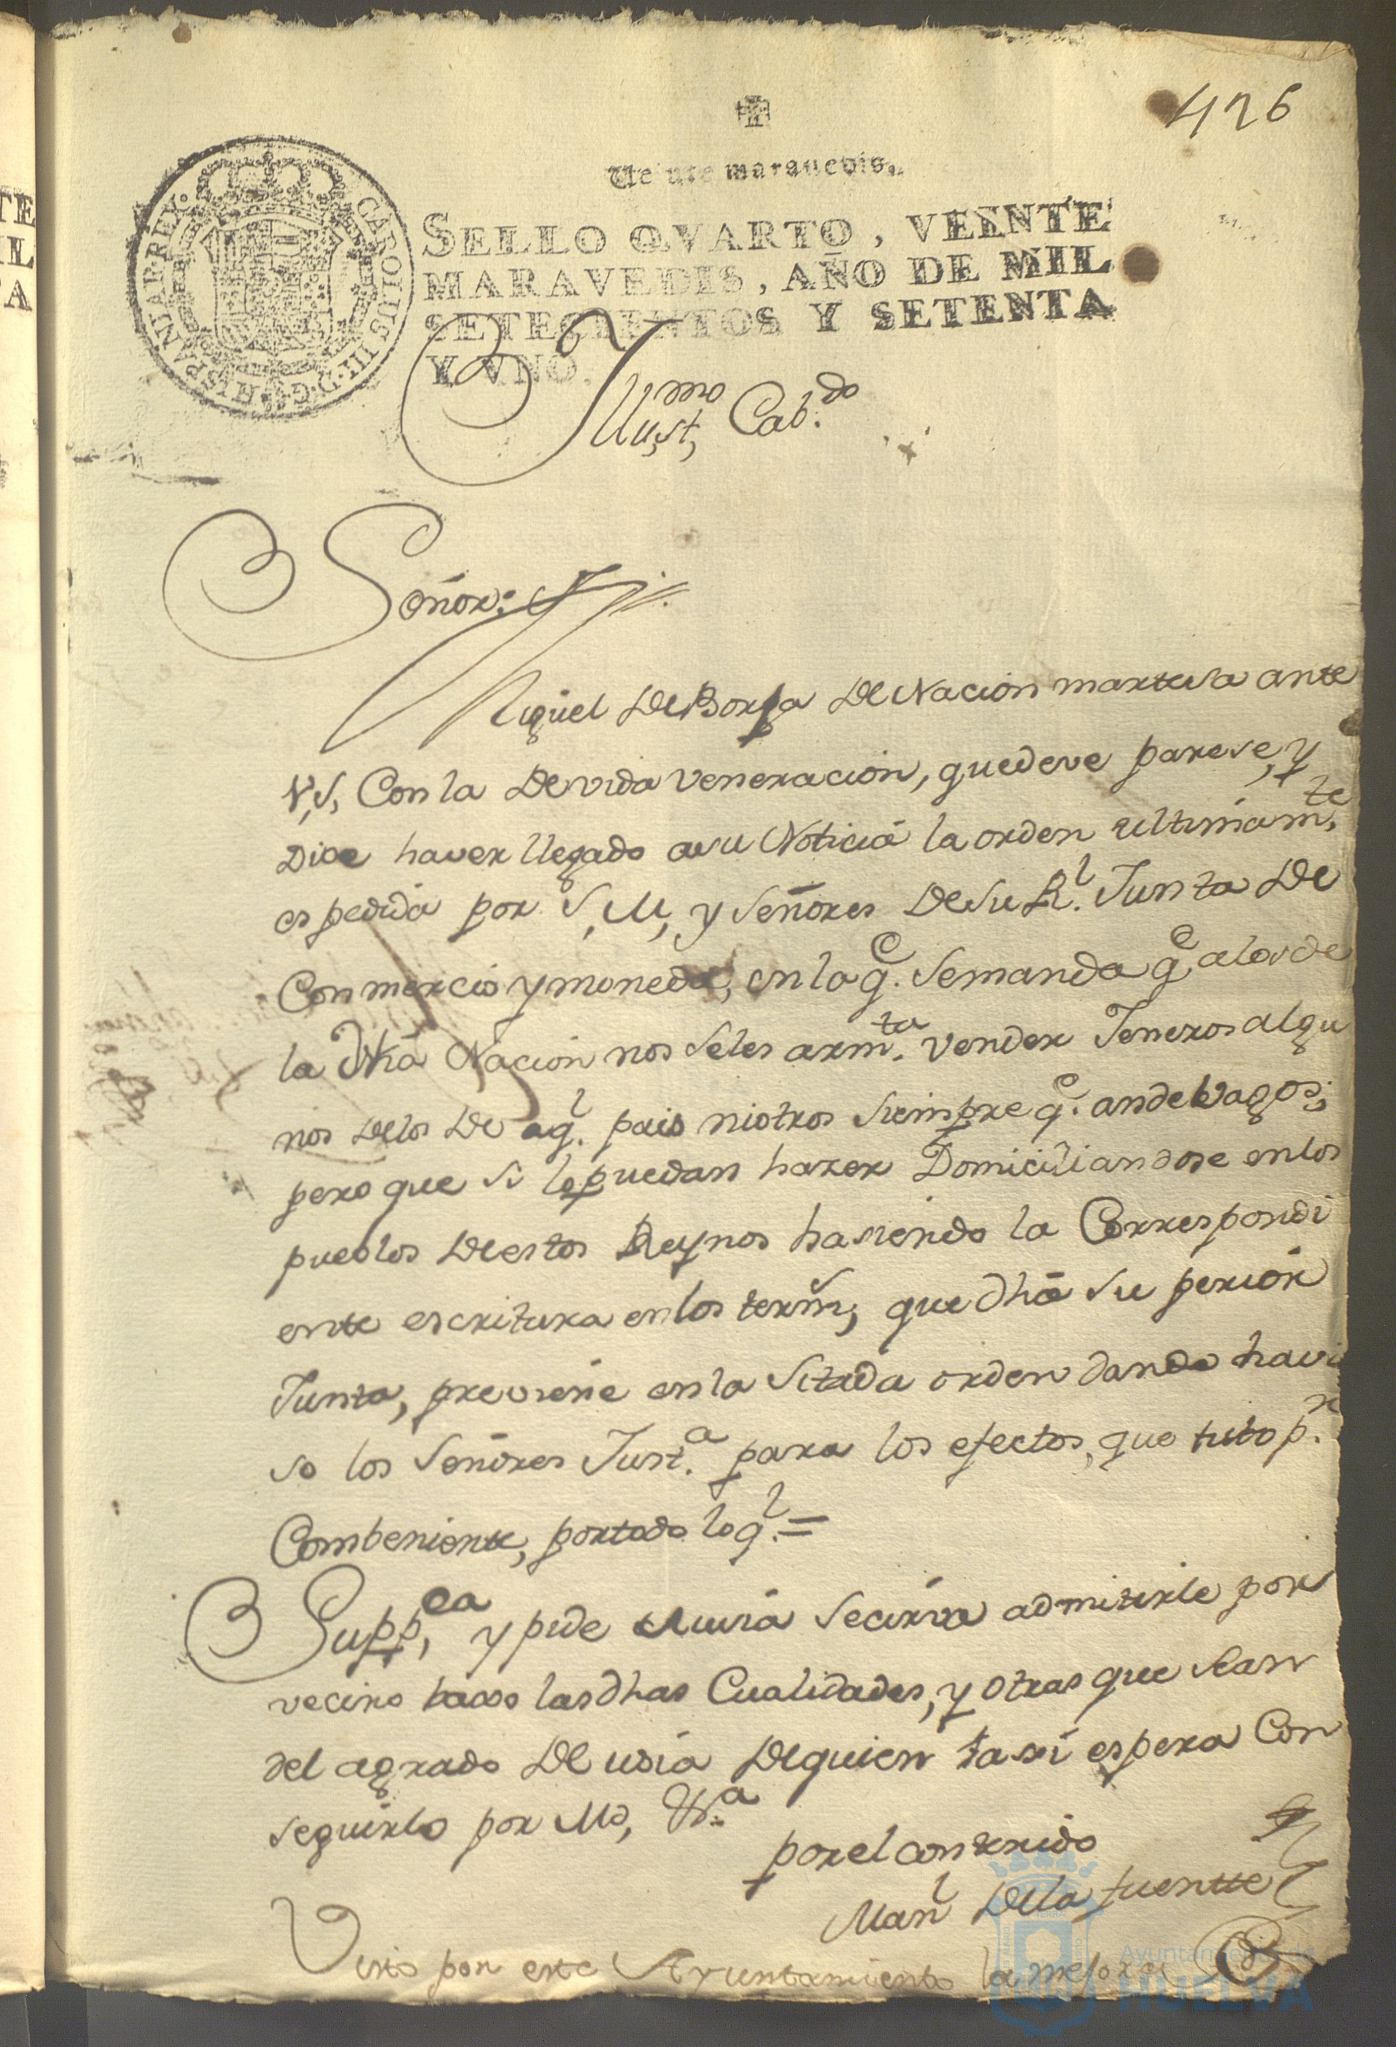 426
Veinte maravedis.
SELLO QVARTO, VEINTE
MARAVEDIS, AÑO DE MIL
SETECIENTOS Y SETENTA
Y VNO.
CAROLUS III D.G. HISPANIAR. REX.
Illust,mo Cab.do
Señor:
Miguel De Borja De Nacion martesa ante
V,S, Con la Devida veneracion, quedeve parese, y
Dice haver llegado asu Noticia la orden ultimam,te
espedida por S,M, y señores De Su R.l Junta De
Conmercio y moneda, en la q.e Semanda q.e alos de
la Dhã Nacion nos seles arm.ta vender Jeneros algu
nos Delos De aq.l pais niotros Siempre q.e ande Vagos;
pero que Si lo puedan hazer Domiciliandose en los
pueblos Destos Reynos hasiendo la Correspondi
ente escritura en los term,s, que dhã Superior
Junta, previene en la Sitada orden dando havi
so los Señores Just.a para los efectos, que tubo p.r
Combeniente, portodo lo q.l =
Supp,ca y pide a usia Secirva admitirle por
vecino baxo las dhas Cualidades, y otras que sean
del agrado De usia De quien tasi espera Con
seguirlo por Md, &.a
por el contenido
Man.l Dela fuentte
Visto por este Ayuntamiento la
Ayuntamiento de
HUELVA